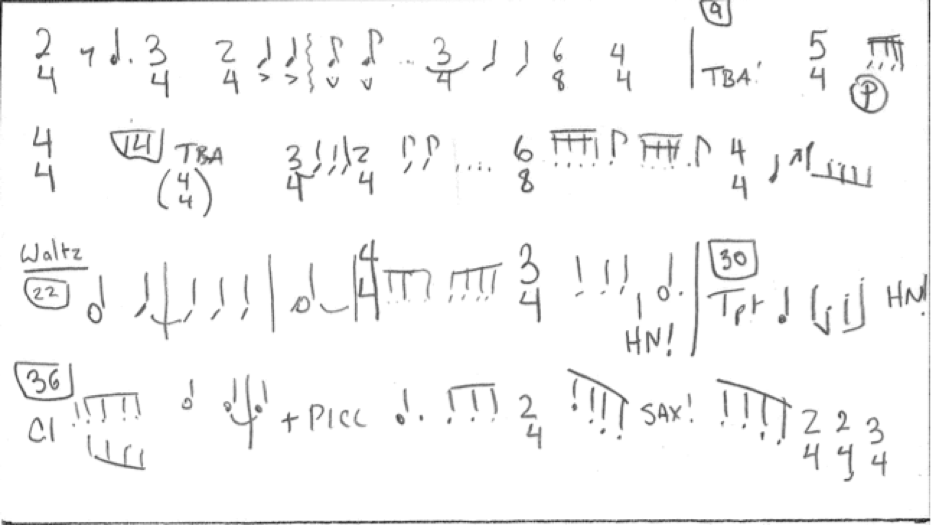 9
2/4 3/4 2/4 ... 3/4 6/8 4/4 TBA! 5/4 P
4/4 14 TBA (4/4) 3/4 2/4 .... 6/8 4/4
Waltz
22 4/4 3/4 HN! 30 Tpt HN!
36
Cl + PICC 2/4 SAX! 2/4 2/4 3/4